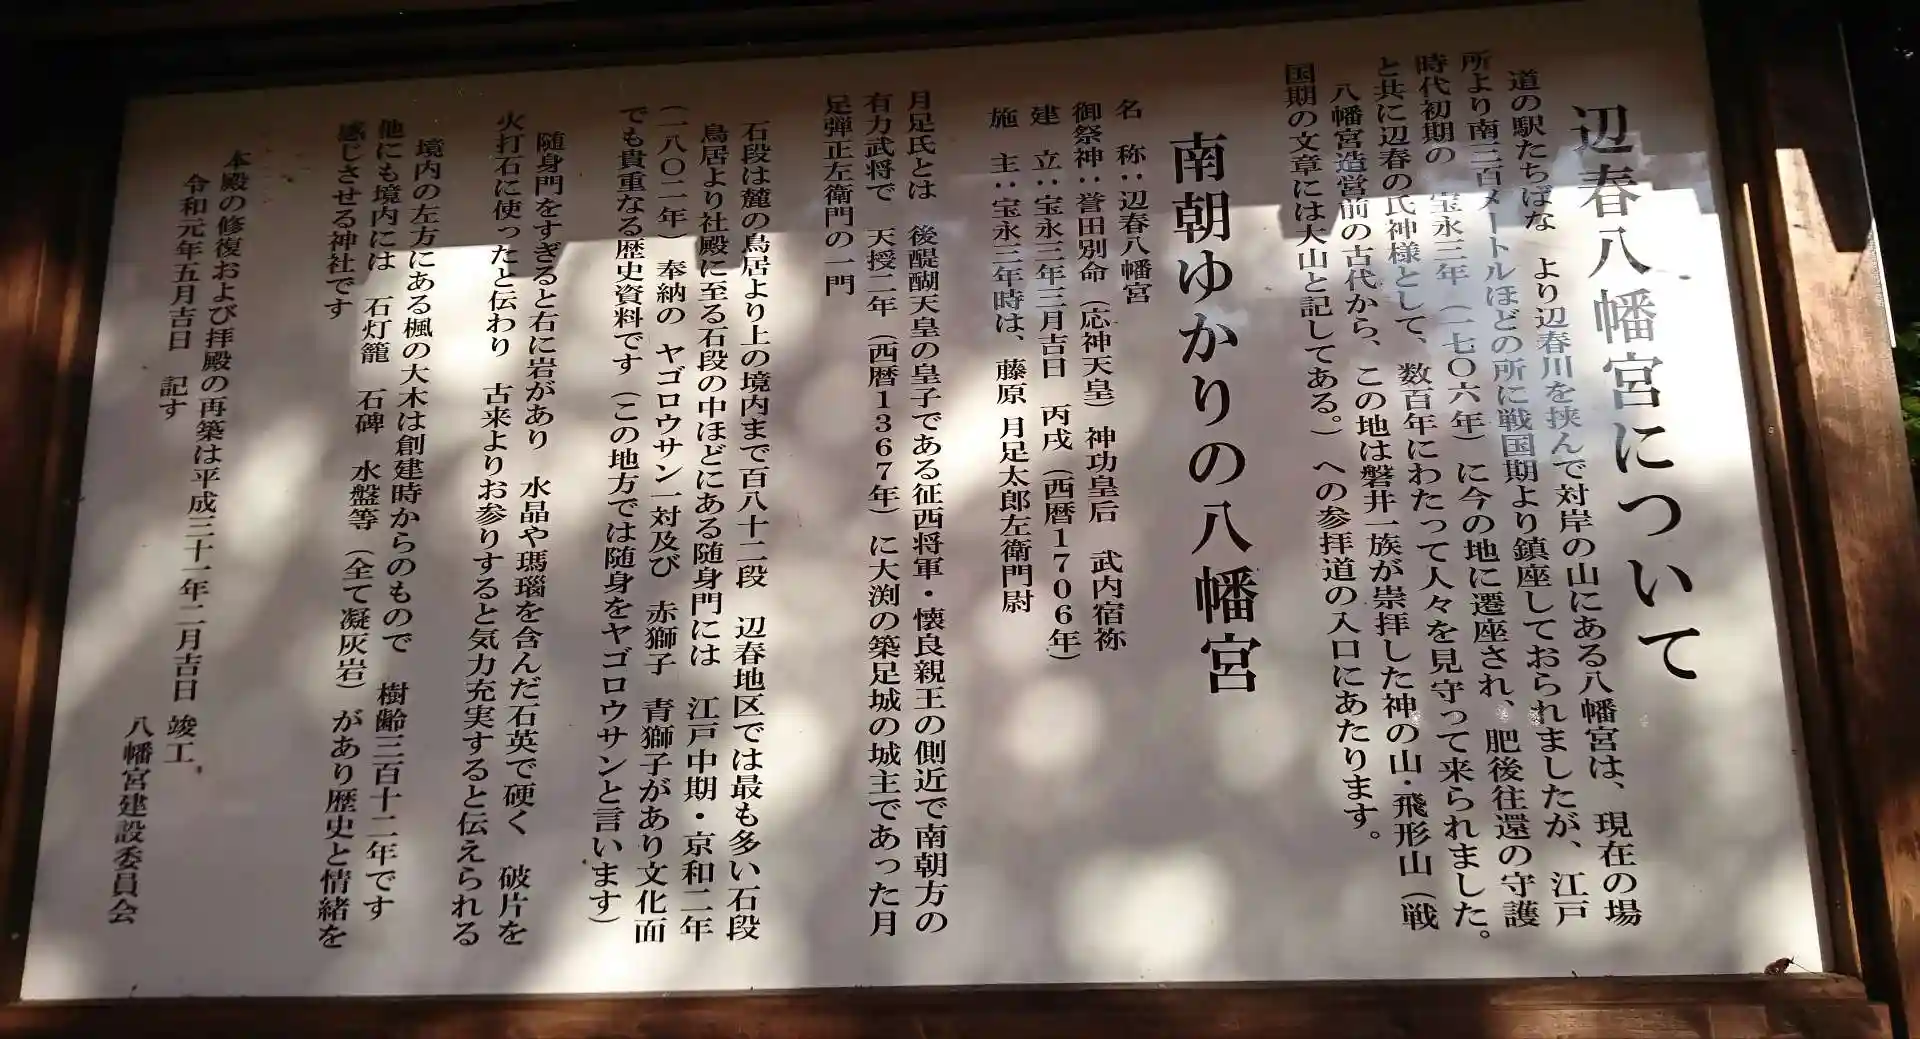 辺春八幡宮について
道の駅たちばな より辺春川を挟んで対岸の山にある八幡宮は、現在の場
所より南三百メートルほどの所に戦国期より鎮座しておられましたが、江戸
時代初期の 宝永三年(一七〇六年)に今の地に遷座され、肥後往還の守護
と共に辺春の氏神様として、数百年にわたって人々を見守って来られました。
八幡宮造営前の古代から、この地は磐井一族が崇拝した神の山・飛形山(戦
国期の文章には大山と記してある。)への参拝道の入口にあたります。
南朝ゆかりの八幡宮
名 称:辺春八幡宮
御祭神:誉田別命(応神天皇)神功皇后 武内宿祢
建 立:宝永三年三月吉日 丙戌(西暦1706年)
施 主:宝永三年時は、藤原 月足太郎左衛門尉
月足氏とは 後醍醐天皇の皇子である征西将軍・懐良親王の側近で南朝方の
有力武将で 天授二年(西暦1367年)に大渕の築足城の城主であった月
足弾正左衛門の一門
石段は麓の鳥居より上の境内まで百八十二段 辺春地区では最も多い石段
鳥居より社殿に至る石段の中ほどにある随身門には 江戸中期・京和二年
(一八〇二年)奉納の ヤゴロウサン一対及び 赤獅子 青獅子があり文化面
でも貴重なる歴史資料です(この地方では随身をヤゴロウサンと言います)
随身門をすぎると右に岩があり 水晶や瑪瑙を含んだ石英で硬く 破片を
火打石に使ったと伝わり 古来よりお参りすると気力充実すると伝えられる
境内の左方にある楓の大木は創建時からのもので 樹齢三百十二年です
他にも境内には 石灯籠 石碑 水盤等(全て凝灰岩)があり歴史と情緒を
感じさせる神社です
本殿の修復および拝殿の再築は平成三十一年二月吉日 竣工。
令和元年五月吉日 記す
八幡宮建設委員会